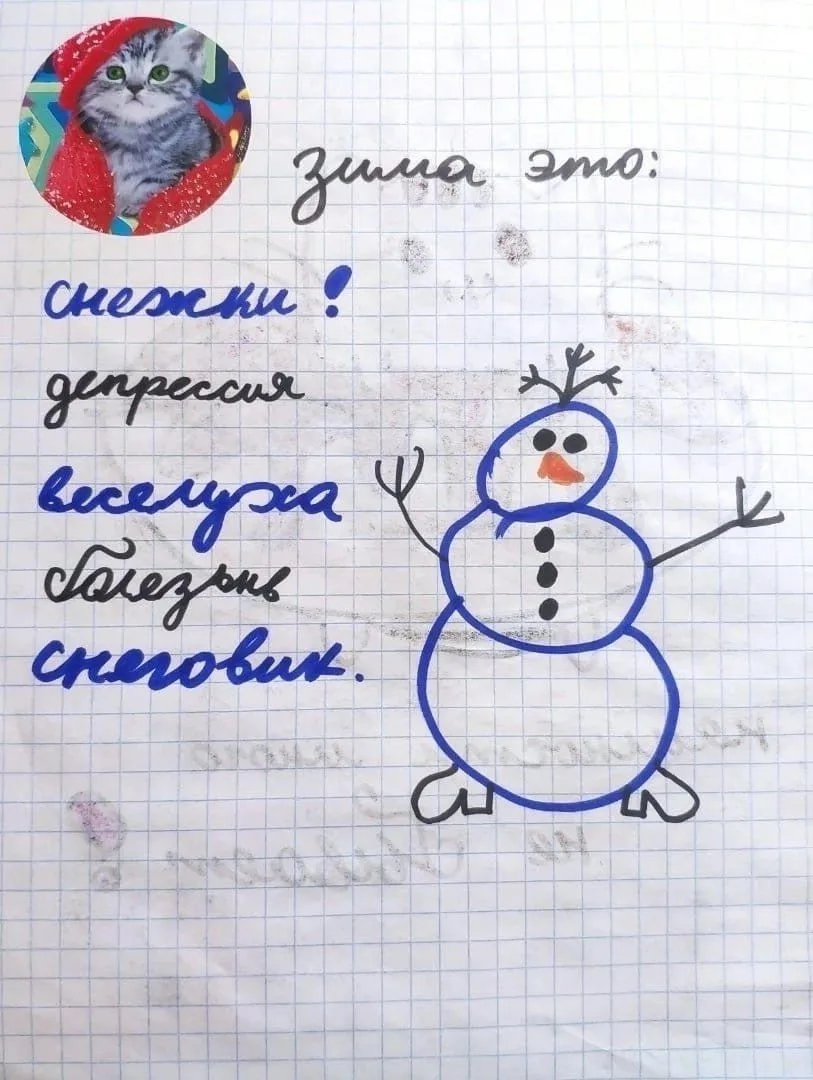 зима это:
снежки!
депрессия
веселуха
болезьнь
снеговик.